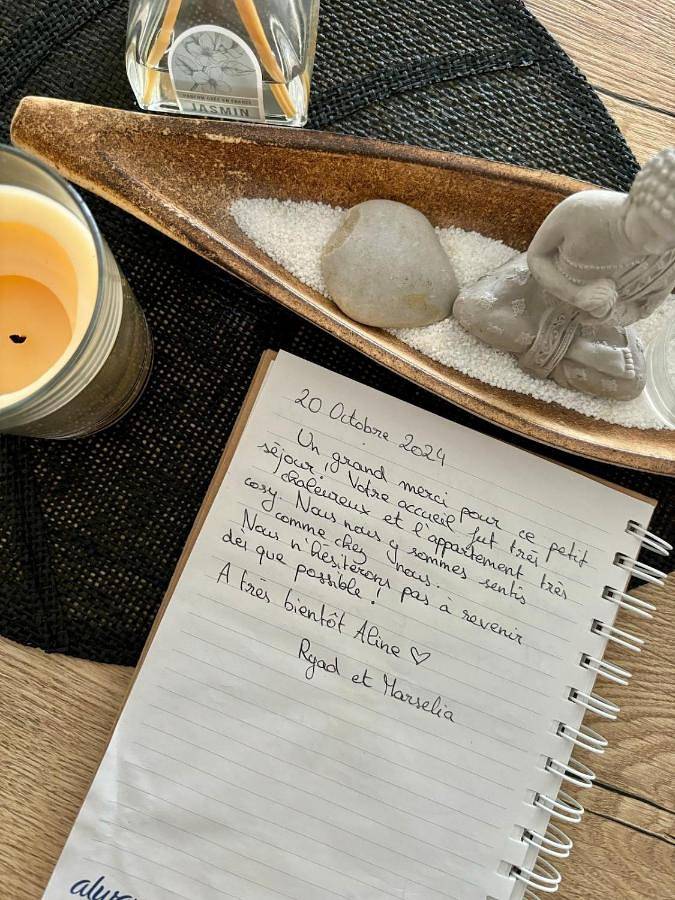 PARFUM CRÉÉ EN FRANCE
JASMIN
20 Octobre 2024
Un grand merci pour ce petit
séjour ! Votre accueil fut très
chaleureux et l'appartement très
cosy. Nous nous y sommes sentis
comme chez nous.
Nous n'hésiterons pas à revenir
dès que possible !
A très bientôt Aline ♡
Ryad et Marselia